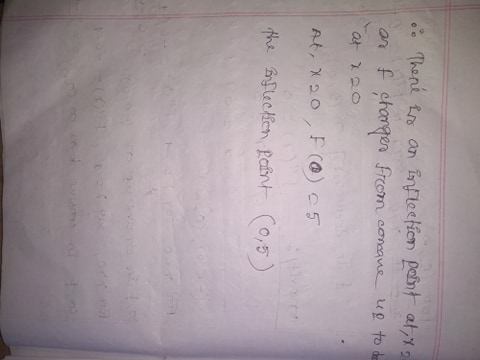 ∴ There is an inflection point at, x =
as f changes from concave up to
at x = 0
At, x = 0, f(0) = 5
the inflection point (0,5)